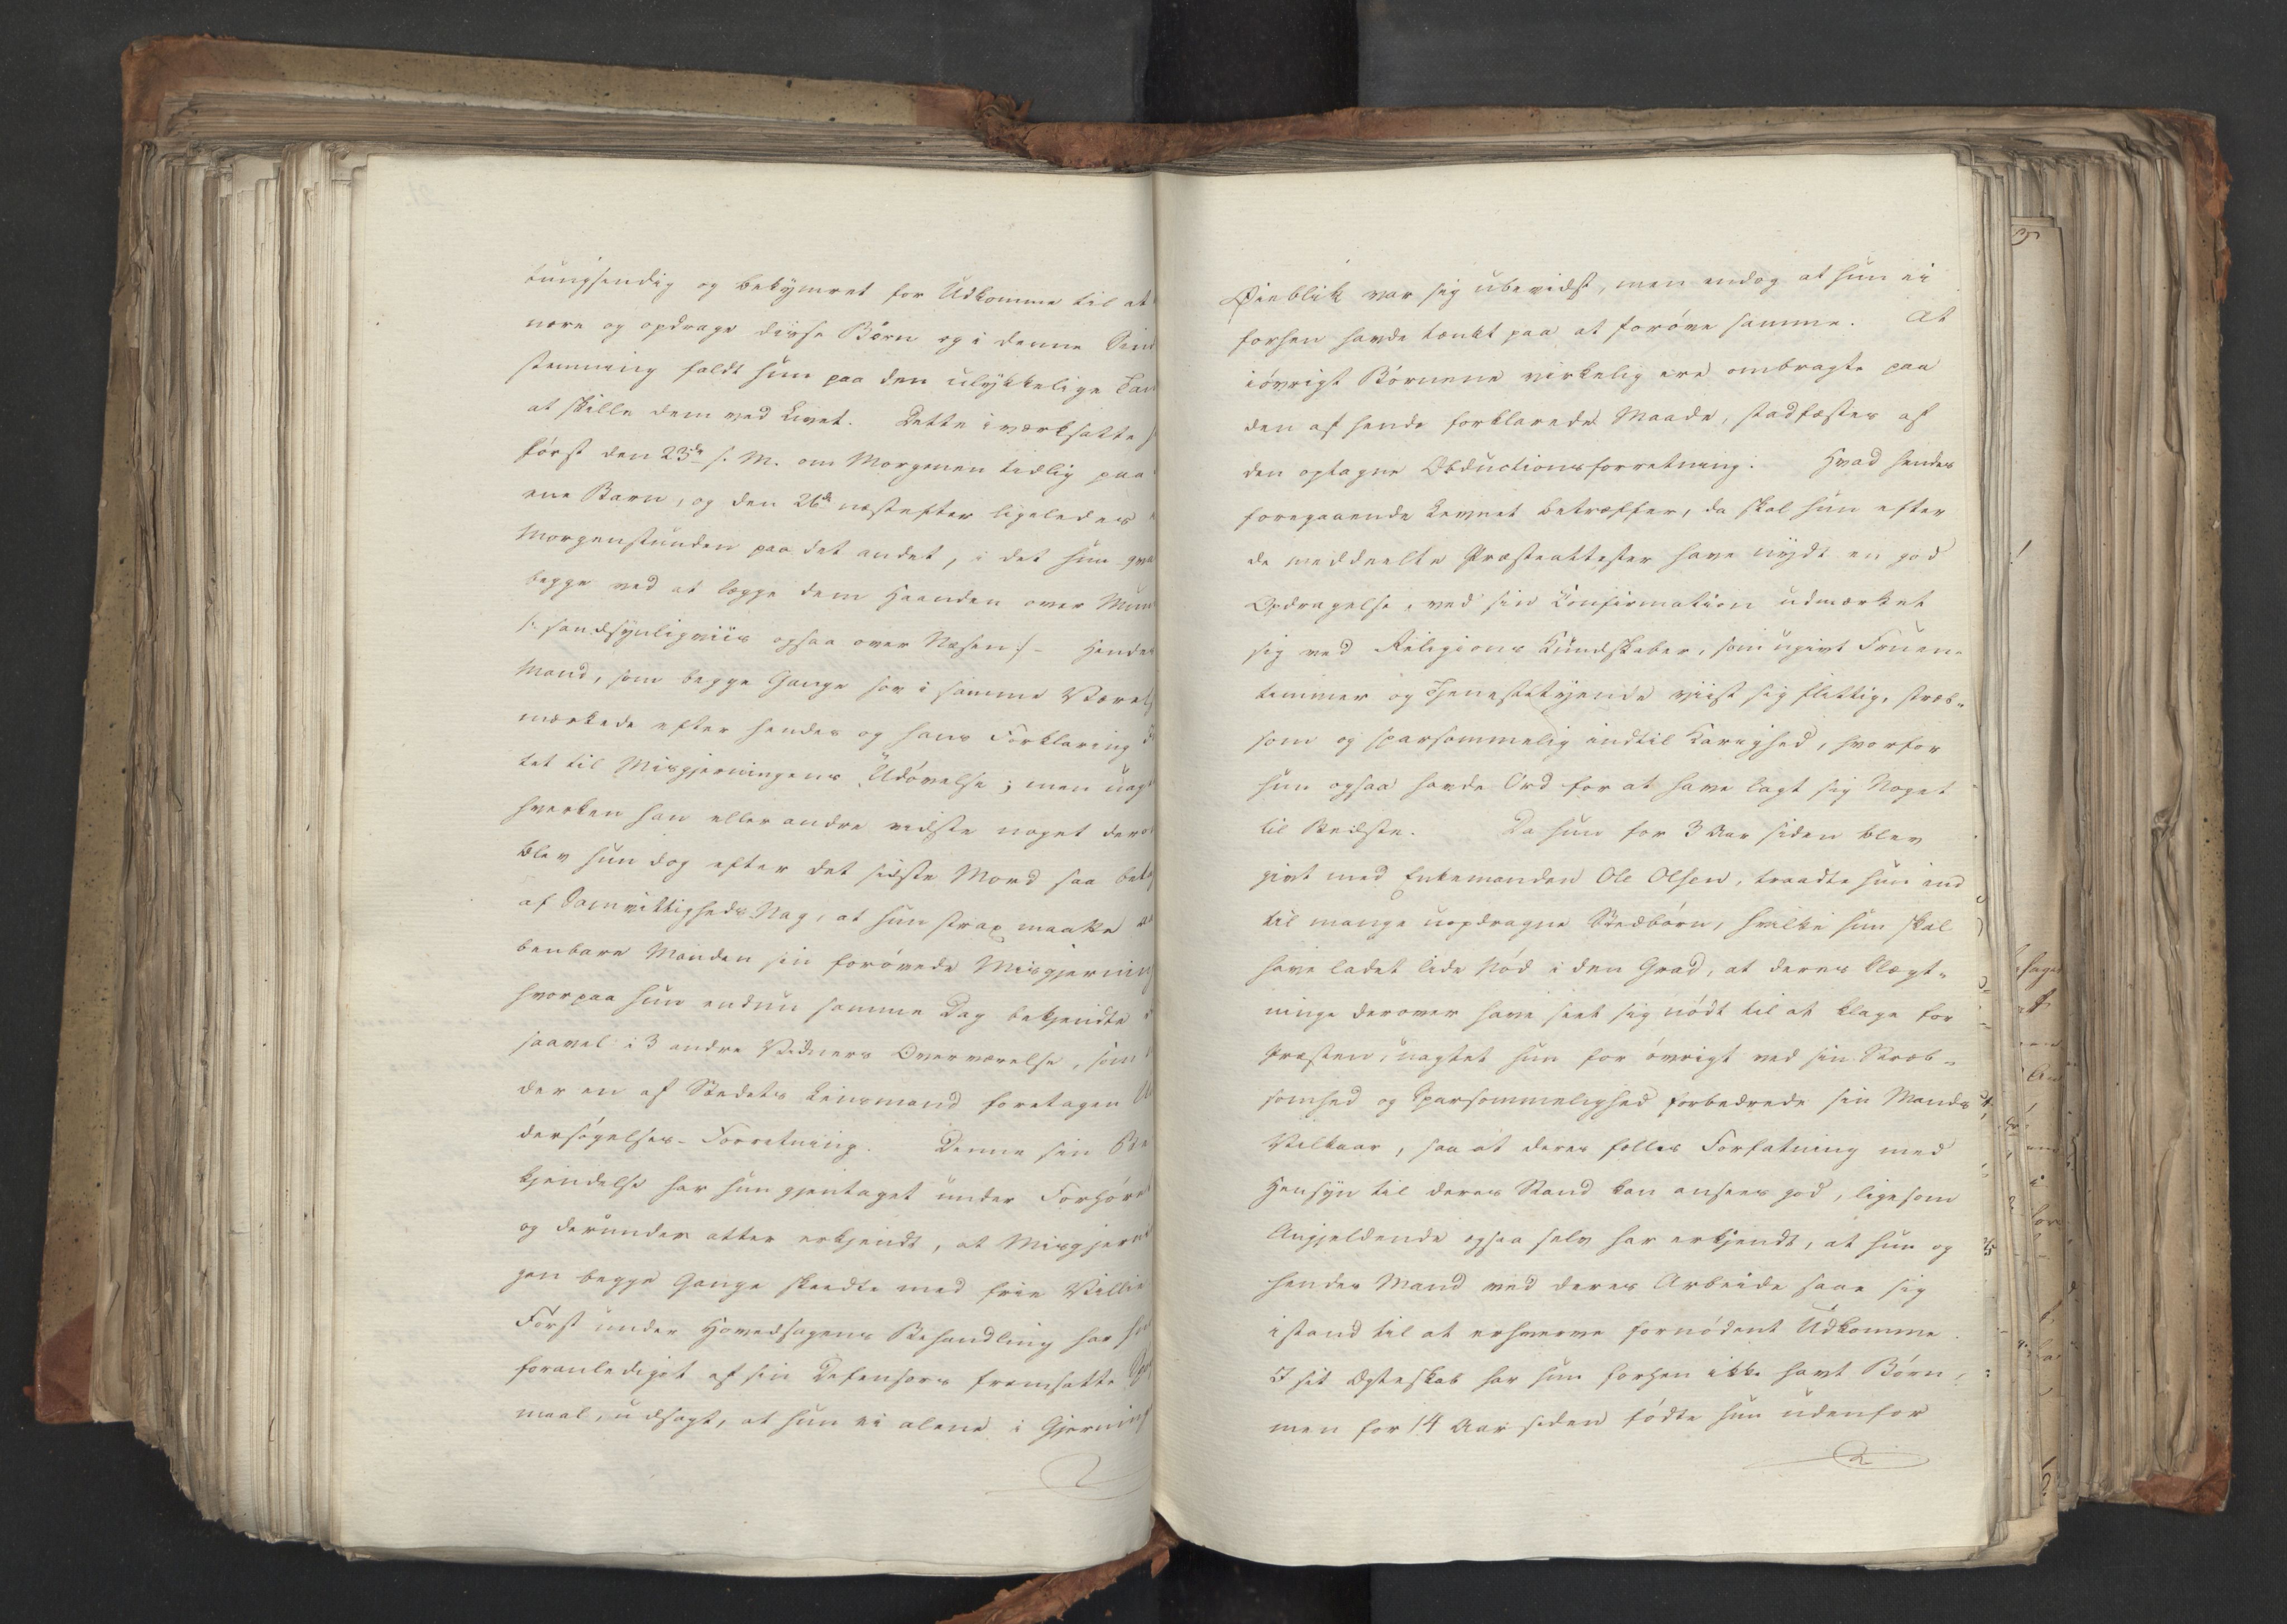 tungsindig og bekymret for Udkomme til at
nære og opdrage disse Børn og i denne Sind
stemning faldt hun paa den ulykkelige Tan
at skille dem ved Livet. Dette iværksatte
først den 23de s. M. om Morgenen tidlig paa
ene Barn, og den 26de næstefter ligeledes
Morgenstunden paa det andet, i det hun qva
begge ved at lægge dem Haanden over Mun
/: sandsynligviis ogsaa over Næsen :/ - Hendes
Mand, som begge Gange sov i samme Værels
mærkede efter hendes og hans Forklaring
tet til Misgjerningens Udøvelse; men uag
hverken han eller andre vidste noget dero
blev hun dog efter det sidste Mord saa bet
af Samvittigheds Nag, at hun strax maatte
benbare Manden sin forøvede Misgjerning
hvorpaa hun endnu samme Dag bekjendte
saavel i 3 andre Vidners Overværelse, som
der en af Stedets Lensmand foretagen Un
dersøgelses-Forretning. Denne sin Be
kjendelse har hun gjentaget under Forhøret
og derunder atter erkjendt, at Misgjerni
gen begge Gange skeedte med frie Villie
Først under Hovedsagens Behandling har hun
foranlediget af sin Defensors fremsatte Spø
maal, udsagt, at hun ei alene i Gjernings
Øieblik var sig ubevidst, men endog at hun ei
forhen havde tænkt paa at forøve samme. At
iøvrigt Børnene virkelig ere ombragte paa
den af hende forklarede Maade, stadfæstes af
den optagne Obductionsforretning. Hvad hendes
foregaaende Levnet betræffer, da skal hun efter
de meddeelte Præsteattester have nydt en god
Opdragelse, ved sin Confirmation udmærket
sig ved Religions Kundskaber, som ugivt Fruen-
temmer og Tjenestetyende viist sig flittig, stræb-
som og sparsommelig indtil Karrighed, hvorfor
hun ogsaa havde Ord for at have lagt sig Noget
til Bedste. Da hun for 3 Aar siden blev
givt med Enkemanden Ole Olsen, traadte hun ind
til mange uopdragne Stedbørn, hvilke hun skal
have ladet lide Nød i den Grad, at deres Slægt-
ninge derover have seet sig nødt til at klage for
Præsten, uagtet hun for øvrigt ved sin Stræb-
somhed og Sparsommelighed forbedrede sin Mands
Vilkaar, saa at deres fælles Forfatning med
Hensyn til deres Stand kan ansees god, ligesom
Angjeldende ogsaa selv har erkjendt, at hun og
hendes Mand ved deres Arbeide saae sig
istand til at erhverve fornødent Udkomme.
I sit Ægteskab har hun forhen ikke havt Børn,
men for 14 Aar siden fødte hun udenfor